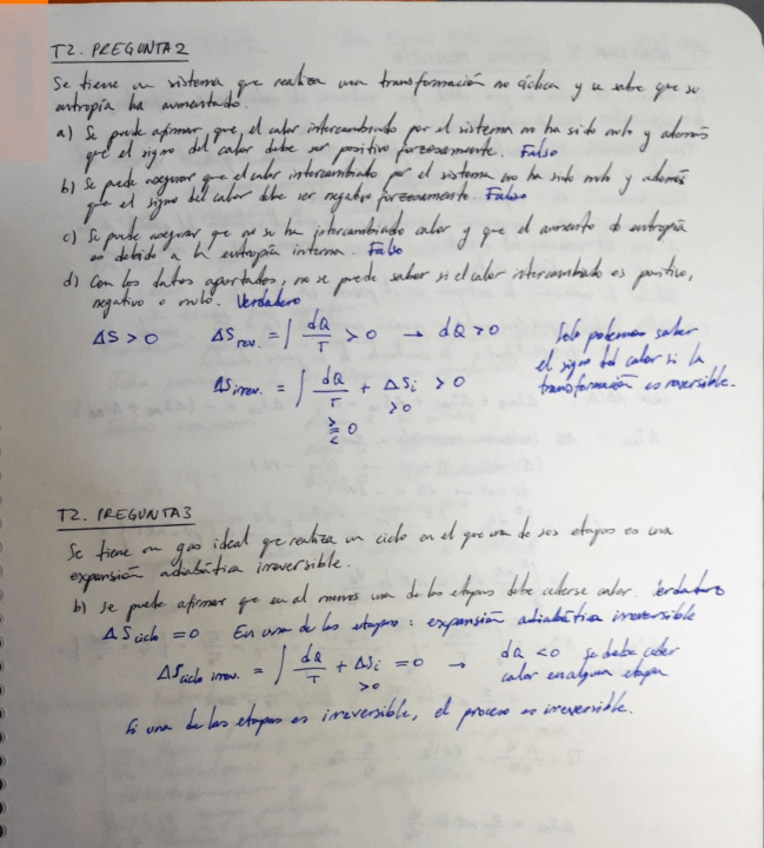 T2. PREGUNTA 2
Se tiene un sistema que realiza una transformación no cíclica y se sabe que su
entropía ha aumentado.
a) Se puede afirmar, que, el calor intercambiado por el sistema no ha sido nulo y además
que el signo del calor debe ser positivo forzosamente. Falso
b) Se puede asegurar que el calor intercambiado por el sistema no ha sido nulo y además
que el signo del calor debe ser negativo forzosamente. Falso
c) Se puede asegurar que no se ha intercambiado calor y que el aumento de entropía
es debido a la entropía interna. Falso
d) Con los datos aportados, no se puede saber si el calor intercambiado es positivo,
negativo o nulo. Verdadero
ΔS > 0 ΔS rev. = ∫ dQ/T > 0 → dQ > 0
Solo podemos saber
el signo del calor si la
transformación es reversible.
ΔS irrev. = ∫ dQ/T + ΔSi > 0
>0
≥ 0
<
T2. PREGUNTA 3
Se tiene un gas ideal que realiza un ciclo en el que una de sus etapas es una
expansión adiabática irreversible.
b) Se puede afirmar que en al menos una de las etapas debe cederse calor. Verdadero
ΔS ciclo = 0 En una de las etapas: expansión adiabática irreversible
ΔS ciclo irrev. = ∫ dQ/T + ΔSi = 0 → dQ < 0 se debe ceder
>0 calor en alguna etapa
Si una de las etapas es irreversible, el proceso es irreversible.